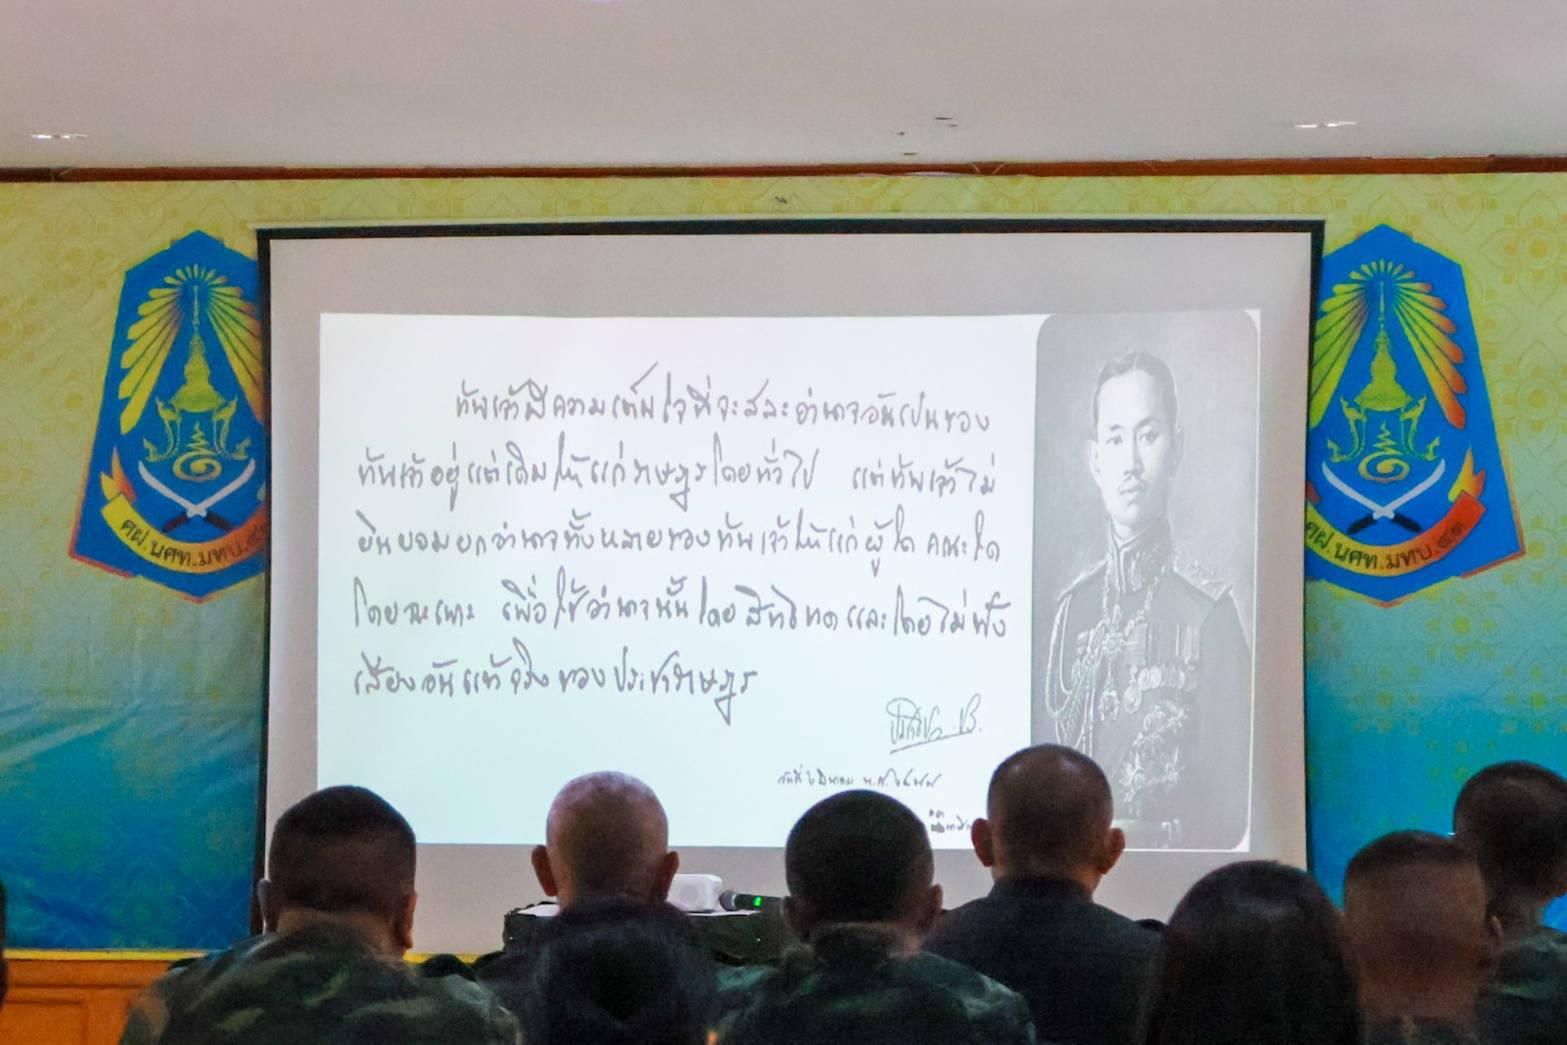 ข้าพเจ้ามีความเต็มใจที่จะสละอำนาจอันเป็นของ
ข้าพเจ้าอยู่แต่เดิมให้แก่ราษฎรโดยทั่วไป แต่ข้าพเจ้าไม่
ยินยอมยกอำนาจทั้งหลายของข้าพเจ้าให้แก่ผู้ใด คณะใด
โดยฉะเพาะ เพื่อใช้อำนาจนั้นโดยสิทธิขาดและโดยไม่ฟัง
เสียงอันแท้จริงของประชาราษฎร
ประชาธิปก ปร.
วันที่ ๒ มีนาคม พ.ศ. ๒๔๗๗
ศฝ.นศท.มทบ.๔๓
ศฝ.นศท.มทบ.๔๓